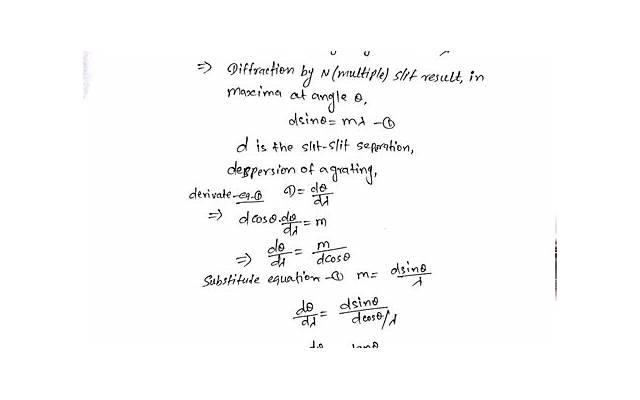 ⇒ Diffraction by N (multiple) slit result, in
maxima at angle θ,
dsinθ = mλ -①
d is the slit-slit separation,
despersion of a grating,
derivate-eq-① D = dθ/dλ
⇒ d cosθ.dθ/dλ = m
⇒ dθ/dλ = m/dcosθ
Substitute equation -① m = dsinθ/λ
dθ/dλ = dsinθ/dcosθ/λ